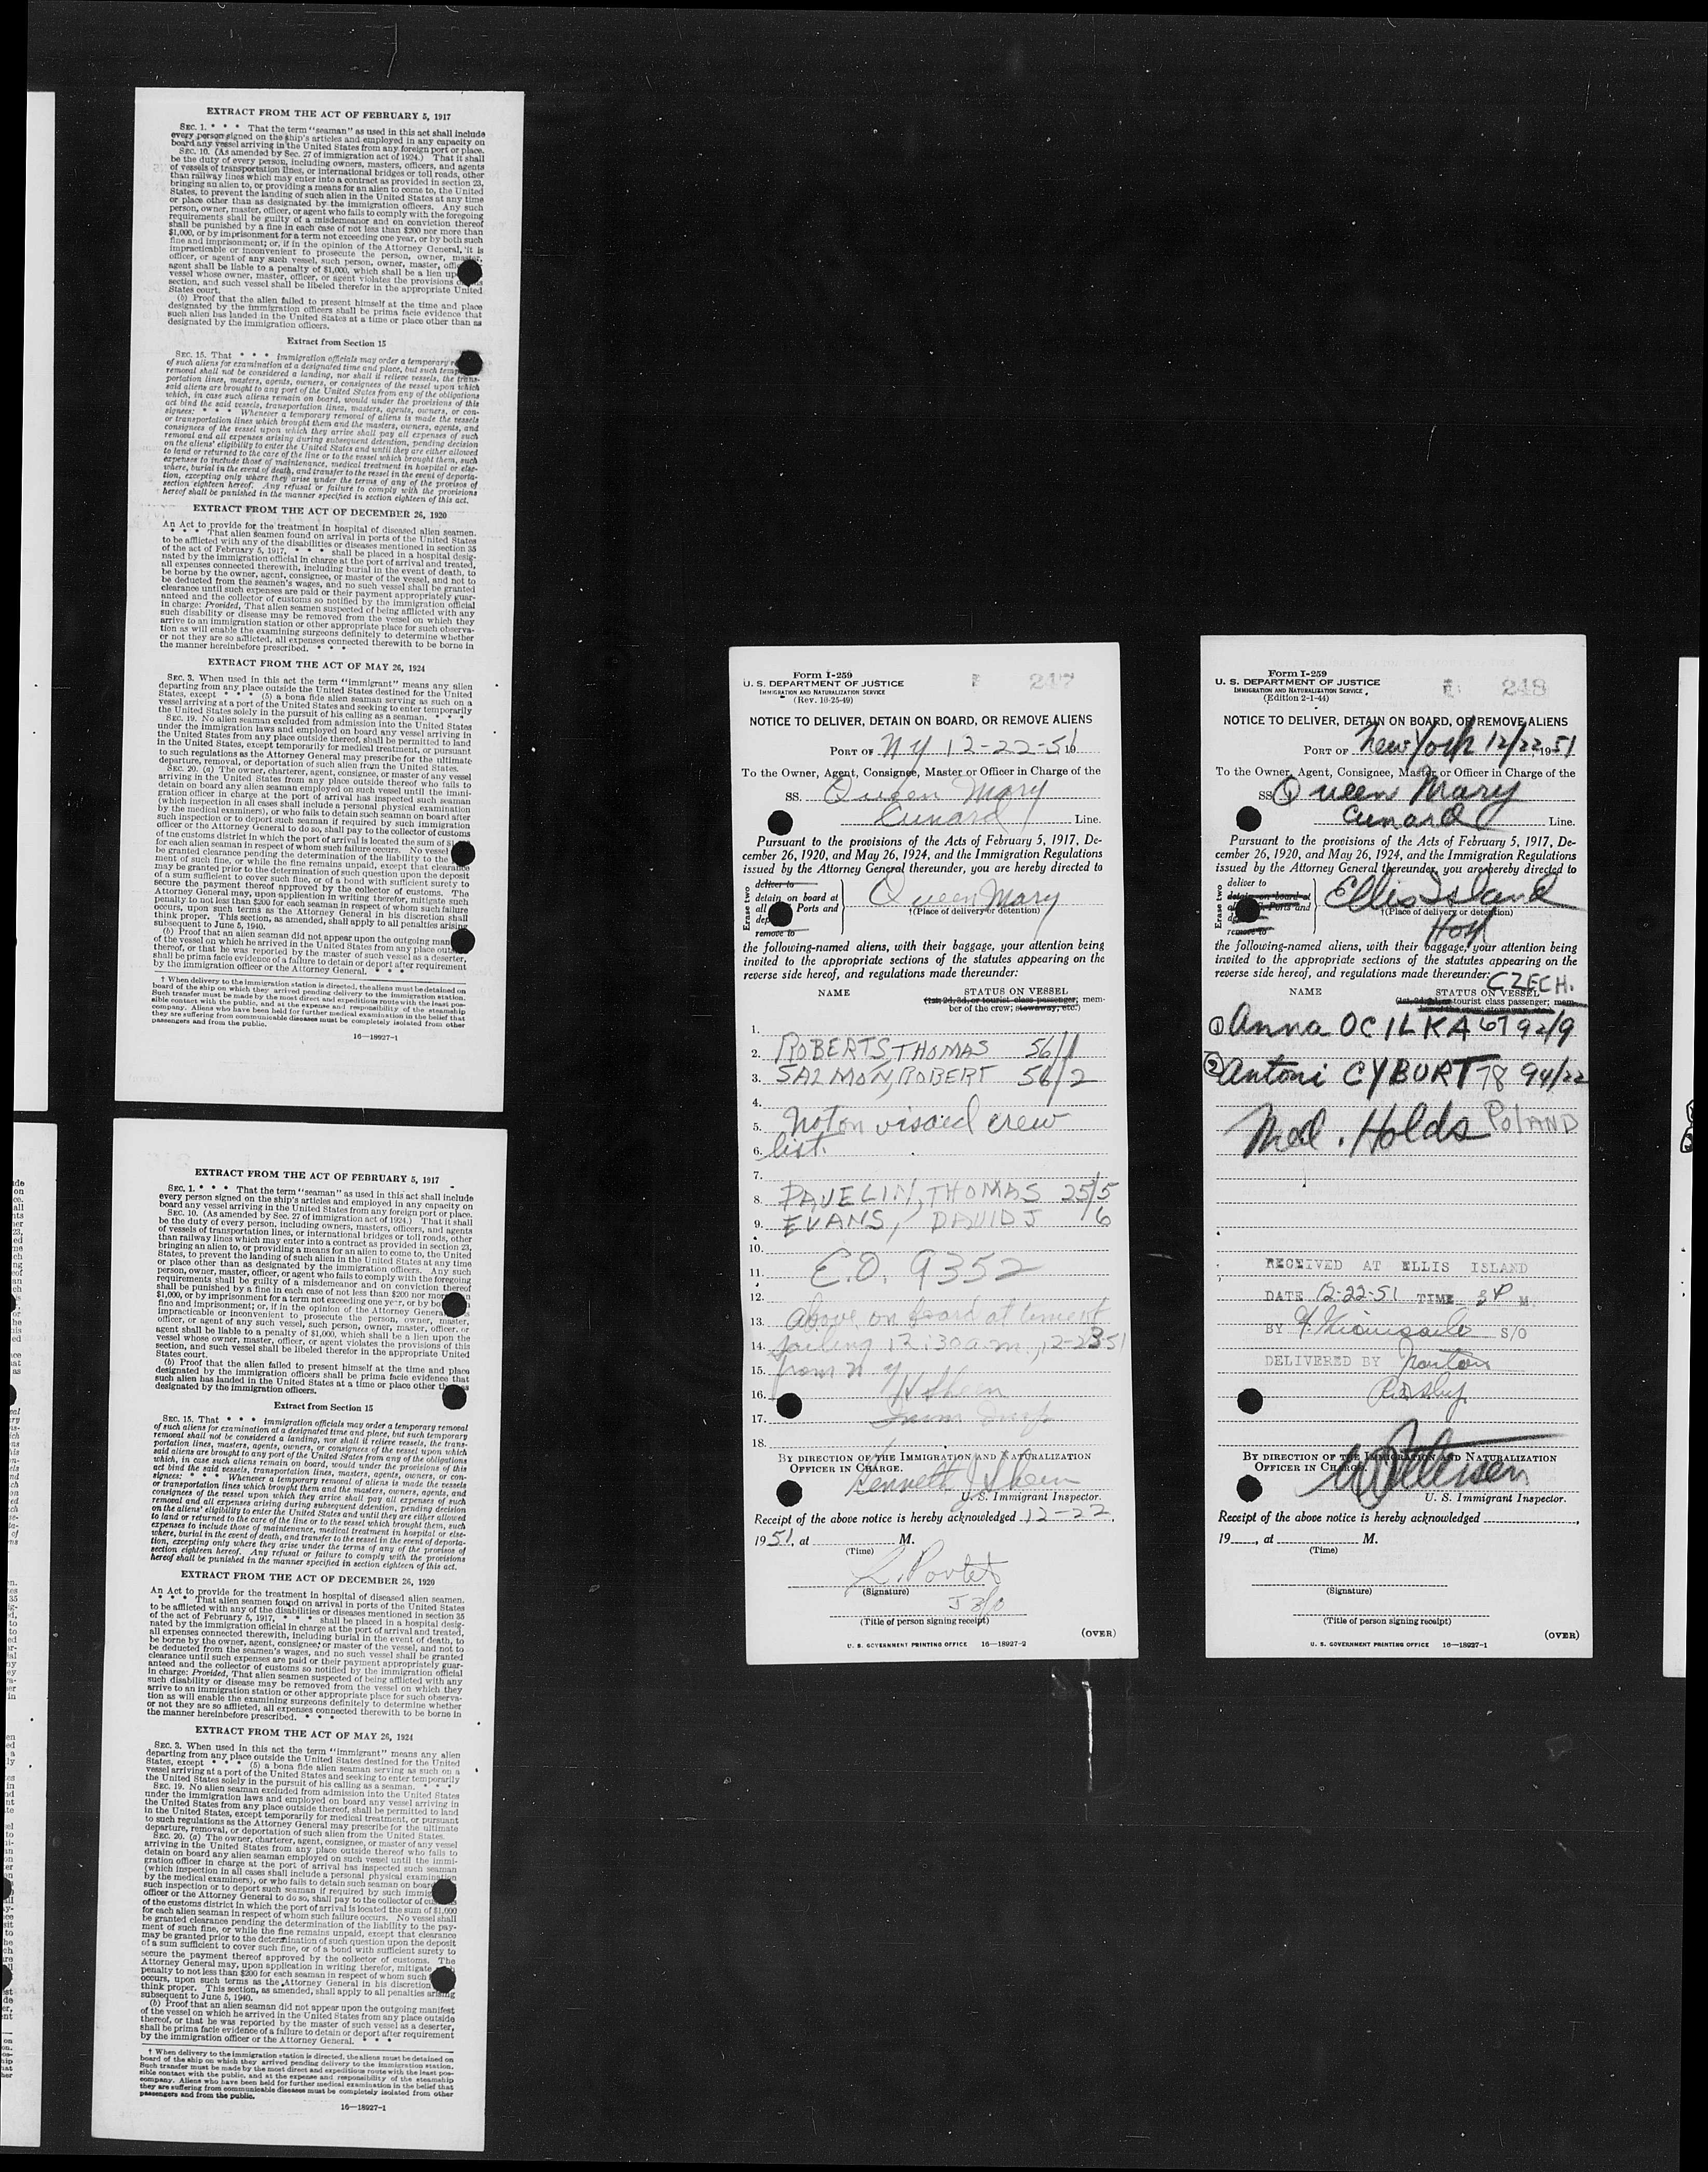 EXTRACT FROM THE ACT OF FEBRUARY 5, 1917
SEC. 1. * * * That the term "seaman" as used in this act shall include
every person signed on the ship's articles and employed in any capacity on
board any vessel arriving in the United States from any foreign port or place.
SEC. 10. (As amended by Sec. 27 of immigration act of 1924.) That it shall
be the duty of every person, including owners, masters, officers, and agents
of vessels of transportation lines, or international bridges or toll roads, other
than railway lines which may enter into a contract as provided in section 23,
bringing an alien to, or providing a means for an alien to come to, the United
States, to prevent the landing of such alien in the United States at any time
or place other than as designated by the immigration officers. Any such
person, owner, master, officer, or agent who fails to comply with the foregoing
requirements shall be guilty of a misdemeanor and on conviction thereof
shall be punished by a fine in each case of not less than $200 nor more than
$1,000, or by imprisonment for a term not exceeding one year, or by both such
fine and imprisonment; or, if in the opinion of the Attorney General, it is
impracticable or inconvenient to prosecute the person, owner, master,
officer, or agent of any such vessel, such person, owner, master,
agent shall be liable to a penalty of $1,000, which shall be a lien
vessel whose owner, master, officer, or agent violates the provisions
section, and such vessel shall be libeled therefor in the appropriate United
States court.
(b) Proof that the alien failed to present himself at the time and place
designated by the immigration officers shall be prima facie evidence that
such alien has landed in the United States at a time or place other than as
designated by the immigration officers.
Extract from Section 15
SEC. 15. That * * * immigration officials may order a temporary
of such aliens for examination at a designated time and place, but such
removal shall not be considered a landing, nor shall it relieve vessels, the trans-
portation lines, masters, agents, owners, or consignees of the vessel upon which
said aliens are brought to any port of the United States from any of the obligations
which, in case such aliens remain on board, would under the provisions of this
act bind the said vessels, transportation lines, masters, agents, owners, or con-
signees: * * * Whenever a temporary removal of aliens is made the vessels
or transportation lines which brought them and the masters, owners, agents, and
consignees of the vessel upon which they arrive shall pay all expenses of such
removal and all expenses arising during subsequent detention, pending decision
on the aliens' eligibility to enter the United States and until they are either allowed
to land or returned to the care of the line or to the vessel which brought them, such
expenses to include those of maintenance, medical treatment in hospital or else-
where, burial in the event of death, and transfer to the vessel in the event of deporta-
tion, excepting only where they arise under the terms of any of the provisos of
section eighteen hereof. Any refusal or failure to comply with the provisions
hereof shall be punished in the manner specified in section eighteen of this act.
EXTRACT FROM THE ACT OF DECEMBER 26, 1920
An Act to provide for the treatment in hospital of diseased alien seamen.
* * * * That alien seamen found on arrival in ports of the United States
to be afflicted with any of the disabilities or diseases mentioned in section 35
of the act of February 5, 1917, * * * shall be placed in a hospital desig-
nated by the immigration official in charge at the port of arrival and treated,
all expenses connected therewith, including burial in the event of death, to
be borne by the owner, agent, consignee, or master of the vessel, and not to
be deducted from the seamen's wages, and no such vessel shall be granted
clearance until such expenses are paid or their payment appropriately guar-
anteed and the collector of customs so notified by the immigration official
in charge: Provided, That alien seamen suspected of being afflicted with any
such disability or disease may be removed from the vessel on which they
arrive to an immigration station or other appropriate place for such observa-
tion as will enable the examining surgeons definitely to determine whether
or not they are so afflicted, all expenses connected therewith to be borne in
the manner hereinbefore prescribed. * * *
EXTRACT FROM THE ACT OF MAY 26, 1924
SEC. 3. When used in this act the term "immigrant" means any alien
departing from any place outside the United States destined for the United
States, except * * * (5) a bona fide alien seaman serving as such on a
vessel arriving at a port of the United States and seeking to enter temporarily
the United States solely in the pursuit of his calling as a seaman. * * *
SEC. 19. No alien seaman excluded from admission into the United States
under the immigration laws and employed on board any vessel arriving in
the United States from any place outside thereof, shall be permitted to land
in the United States, except temporarily for medical treatment, or pursuant
to such regulations as the Attorney General may prescribe for the ultimate
departure, removal, or deportation of such alien from the United States.
SEC. 20. (a) The owner, charterer, agent, consignee, or master of any vessel
arriving in the United States from any place outside thereof who fails to
detain on board any alien seaman employed on such vessel until the immi-
gration officer in charge at the port of arrival has inspected such seaman
(which inspection in all cases shall include a personal physical examination
by the medical examiners), or who fails to detain such seaman on board after
such inspection or to deport such seaman if required by such immigration
officer or the Attorney General to do so, shall pay to the collector of customs
of the customs district in which the port of arrival is located the sum of
for each alien seaman in respect of whom such failure occurs. No vessel
be granted clearance pending the determination of the liability to the
ment of such fine, or while the fine remains unpaid, except that clearance
may be granted prior to the determination of such question upon the deposit
of a sum sufficient to cover such fine, or of a bond with sufficient surety to
secure the payment thereof approved by the collector of customs. The
Attorney General may, upon application in writing therefor, mitigate such
penalty to not less than $200 for each seaman in respect of whom such failure
occurs, upon such terms as the Attorney General in his discretion shall
think proper. This section, as amended, shall apply to all penalties arising
subsequent to June 5, 1940.
(b) Proof that an alien seaman did not appear upon the outgoing
of the vessel on which he arrived in the United States from any place
thereof, or that he was reported by the master of such vessel as a deserter,
shall be prima facie evidence of a failure to detain or deport after requirement
by the immigration officer or the Attorney General. * * *
† When delivery to the immigration station is directed, the aliens must be detained on
board of the ship on which they arrived pending delivery to the immigration station.
Such transfer must be made by the most direct and expeditious route with the least pos-
sible contact with the public, and at the expense and responsibility of the steamship
company. Aliens who have been held for further medical examination in the belief that
they are suffering from communicable diseases must be completely isolated from other
passengers and from the public.
16—18927-1
EXTRACT FROM THE ACT OF FEBRUARY 5, 1917
SEC. 1. * * * That the term "seaman" as used in this act shall include
every person signed on the ship's articles and employed in any capacity on
board any vessel arriving in the United States from any foreign port or place.
SEC. 10. (As amended by Sec. 27 of immigration act of 1924.) That it shall
be the duty of every person, including owners, masters, officers, and agents
of vessels of transportation lines, or international bridges or toll roads, other
than railway lines which may enter into a contract as provided in section 23,
bringing an alien to, or providing a means for an alien to come to, the United
States, to prevent the landing of such alien in the United States at any time
or place other than as designated by the immigration officers. Any such
person, owner, master, officer, or agent who fails to comply with the foregoing
requirements shall be guilty of a misdemeanor and on conviction thereof
shall be punished by a fine in each case of not less than $200 nor
$1,000, or by imprisonment for a term not exceeding one year, or by
fine and imprisonment; or, if in the opinion of the Attorney
impracticable or inconvenient to prosecute the person, owner, master,
officer, or agent of any such vessel, such person, owner, master, officer, or
agent shall be liable to a penalty of $1,000, which shall be a lien upon the
vessel whose owner, master, officer, or agent violates the provisions of this
section, and such vessel shall be libeled therefor in the appropriate United
States court.
(b) Proof that the alien failed to present himself at the time and place
designated by the immigration officers shall be prima facie evidence that
such alien has landed in the United States at a time or place other
designated by the immigration officers.
Extract from Section 15
SEC. 15. That * * * immigration officials may order a temporary removal
of such aliens for examination at a designated time and place, but such temporary
removal shall not be considered a landing, nor shall it relieve vessels, the trans-
portation lines, masters, agents, owners, or consignees of the vessel upon which
said aliens are brought to any port of the United States from any of the obligations
which, in case such aliens remain on board, would under the provisions of this
act bind the said vessels, transportation lines, masters, agents, owners, or con-
signees: * * * Whenever a temporary removal of aliens is made the vessels
or transportation lines which brought them and the masters, owners, agents, and
consignees of the vessel upon which they arrive shall pay all expenses of such
removal and all expenses arising during subsequent detention, pending decision
on the aliens' eligibility to enter the United States and until they are either allowed
to land or returned to the care of the line or to the vessel which brought them, such
expenses to include those of maintenance, medical treatment in hospital or else-
where, burial in the event of death, and transfer to the vessel in the event of deporta-
tion, excepting only where they arise under the terms of any of the provisos of
section eighteen hereof. Any refusal or failure to comply with the provisions
hereof shall be punished in the manner specified in section eighteen of this act.
EXTRACT FROM THE ACT OF DECEMBER 26, 1920
An Act to provide for the treatment in hospital of diseased alien seamen.
* * * * That alien seamen found on arrival in ports of the United States
to be afflicted with any of the disabilities or diseases mentioned in section 35
of the act of February 5, 1917, * * * shall be placed in a hospital desig-
nated by the immigration official in charge at the port of arrival and treated,
all expenses connected therewith, including burial in the event of death, to
be borne by the owner, agent, consignee, or master of the vessel, and not to
be deducted from the seamen's wages, and no such vessel shall be granted
clearance until such expenses are paid or their payment appropriately guar-
anteed and the collector of customs so notified by the immigration official
in charge: Provided, That alien seamen suspected of being afflicted with any
such disability or disease may be removed from the vessel on which they
arrive to an immigration station or other appropriate place for such observa-
tion as will enable the examining surgeons definitely to determine whether
or not they are so afflicted, all expenses connected therewith to be borne in
the manner hereinbefore prescribed. * * *
EXTRACT FROM THE ACT OF MAY 26, 1924
SEC. 3. When used in this act the term "immigrant" means any alien
departing from any place outside the United States destined for the United
States, except * * * (5) a bona fide alien seaman serving as such on a
vessel arriving at a port of the United States and seeking to enter temporarily
the United States solely in the pursuit of his calling as a seaman. * * *
SEC. 19. No alien seaman excluded from admission into the United States
under the immigration laws and employed on board any vessel arriving in
the United States from any place outside thereof, shall be permitted to land
in the United States, except temporarily for medical treatment, or pursuant
to such regulations as the Attorney General may prescribe for the ultimate
departure, removal, or deportation of such alien from the United States.
SEC. 20. (a) The owner, charterer, agent, consignee, or master of any vessel
arriving in the United States from any place outside thereof who fails to
detain on board any alien seaman employed on such vessel until the immi-
gration officer in charge at the port of arrival has inspected such seaman
(which inspection in all cases shall include a personal physical examination
by the medical examiners), or who fails to detain such seaman on board
such inspection or to deport such seaman if required by such
officer or the Attorney General to do so, shall pay to the collector of
of the customs district in which the port of arrival is located the sum of $1,000
for each alien seaman in respect of whom such failure occurs. No vessel shall
be granted clearance pending the determination of the liability to the pay-
ment of such fine, or while the fine remains unpaid, except that clearance
may be granted prior to the determination of such question upon the deposit
of a sum sufficient to cover such fine, or of a bond with sufficient surety to
secure the payment thereof approved by the collector of customs. The
Attorney General may, upon application in writing therefor, mitigate
penalty to not less than $200 for each seaman in respect of whom such
occurs, upon such terms as the Attorney General in his discretion
think proper. This section, as amended, shall apply to all penalties arising
subsequent to June 5, 1940.
(b) Proof that an alien seaman did not appear upon the outgoing manifest
of the vessel on which he arrived in the United States from any place outside
thereof, or that he was reported by the master of such vessel as a deserter,
shall be prima facie evidence of a failure to detain or deport after requirement
by the immigration officer or the Attorney General. * * *
† When delivery to the immigration station is directed, the aliens must be detained on
board of the ship on which they arrived pending delivery to the immigration station.
Such transfer must be made by the most direct and expeditious route with the least pos-
sible contact with the public, and at the expense and responsibility of the steamship
company. Aliens who have been held for further medical examination in the belief that
they are suffering from communicable diseases must be completely isolated from other
passengers and from the public.
16—18927-1
Form I-259
U. S. DEPARTMENT OF JUSTICE
IMMIGRATION AND NATURALIZATION SERVICE
(Rev. 10-25-49)
247
NOTICE TO DELIVER, DETAIN ON BOARD, OR REMOVE ALIENS
PORT OF NY 12-22-51 19
To the Owner, Agent, Consignee, Master or Officer in Charge of the
SS. Queen Mary
Cunard Line.
Pursuant to the provisions of the Acts of February 5, 1917, De-
cember 26, 1920, and May 26, 1924, and the Immigration Regulations
issued by the Attorney General thereunder, you are hereby directed to
Erase two
deliver to
detain on board at
all Ports and
remove to
Queen Mary
†(Place of delivery or detention)
the following-named aliens, with their baggage, your attention being
invited to the appropriate sections of the statutes appearing on the
reverse side hereof, and regulations made thereunder:
NAME STATUS ON VESSEL
(1st, 2d, 3d, or tourist class passenger; mem-
ber of the crew; stowaway, etc.)
1.
2. ROBERTS, THOMAS 56/1
3. SALMON, ROBERT 56/2
4.
5. Not on visaed crew
6. list.
7.
8. PAVELIN, THOMAS 25/5
9. EVANS, DAVID J /6
10.
11. E.O. 9352
12.
13. Above on board at time of
14. sailing 12:30 a.m., 12-23-51
15. from N Y
16. K Sheen
17.
18.
BY DIRECTION OF THE IMMIGRATION AND NATURALIZATION
OFFICER IN CHARGE.
Kenneth J Sheen
U. S. Immigrant Inspector.
Receipt of the above notice is hereby acknowledged 12-22,
1951, at M.
(Time)
L. Porter
(Signature)
(Title of person signing receipt)
(OVER)
U. S. GOVERNMENT PRINTING OFFICE 16—18927-2
Form I-259
U. S. DEPARTMENT OF JUSTICE
IMMIGRATION AND NATURALIZATION SERVICE
(Edition 2-1-44)
248
NOTICE TO DELIVER, DETAIN ON BOARD, OR REMOVE ALIENS
PORT OF New York 12/22, 1951
To the Owner, Agent, Consignee, Master or Officer in Charge of the
SS Queen Mary
Cunard Line.
Pursuant to the provisions of the Acts of February 5, 1917, De-
cember 26, 1920, and May 26, 1924, and the Immigration Regulations
issued by the Attorney General thereunder, you are hereby directed to
Erase two
deliver to
detain on board at
Ports and
remove to
Ellis Island
†(Place of delivery or detention)
the following-named aliens, with their baggage, your attention being
invited to the appropriate sections of the statutes appearing on the
reverse side hereof, and regulations made thereunder:
CZECH.
NAME STATUS ON VESSEL
tourist class passenger; mem-
① Anna OCILKA 67 92/9
② Antoni CYBURT 78 94/22
Med. Holds POLAND
RECEIVED AT ELLIS ISLAND
DATE 12-22-51 TIME P M.
BY S/O
DELIVERED BY
BY DIRECTION OF THE IMMIGRATION AND NATURALIZATION
OFFICER IN CHARGE.
U. S. Immigrant Inspector.
Receipt of the above notice is hereby acknowledged ,
19 , at M.
(Time)
(Signature)
(Title of person signing receipt)
(OVER)
U. S. GOVERNMENT PRINTING OFFICE 16—18927-1